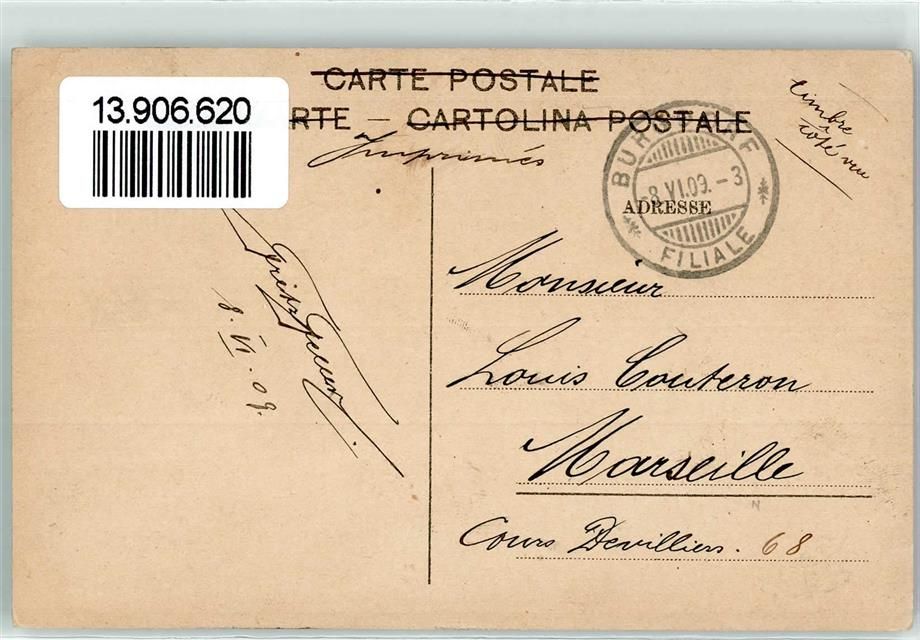 CARTE POSTALE
13.906.620
RTE — CARTOLINA POSTALE
timbre
côté vue
Imprimés
BURGDORF
8.VI.09.-3
FILIALE
ADRESSE
Monsieur
Louis Couteron
Marseille
Cours Devilliers. 68
Fritz
8. VI. 09.